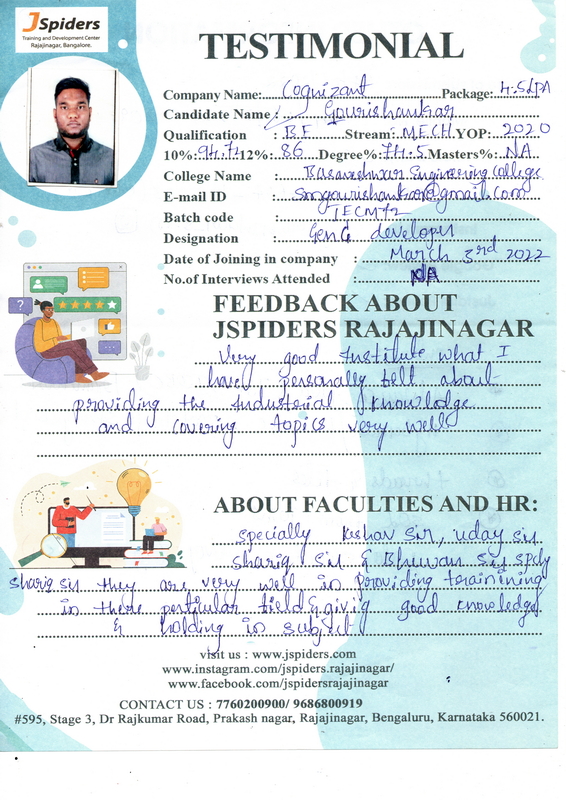 JSpiders
Training and Development Center
Rajajinagar, Bangalore.
TESTIMONIAL
Company Name: Cognizant Package: 4.5LPA
Candidate Name : Gourishankar
Qualification : B.E Stream: MECH YOP: 2020
10%: 94.72 12%: 86 Degree%: 74.5 Masters%: NA
College Name : Basaveshwar Engineering College
E-mail ID : smgourishankar@gmail.com
Batch code : TECM72
Designation : GenC developer
Date of Joining in company : March 3rd 2022
No.of Interviews Attended : NA
FEEDBACK ABOUT
JSPIDERS RAJAJINAGAR
Very good Institute what I
have personally tell about
providing the Industrial knowledge
and covering topics very well
ABOUT FACULTIES AND HR:
specially Keshav Sir, uday sir
shariq Sir & Bhuwan Sir
shariq sir they are very well in providing training
in there perticular field & givig good knowledge
& holding in subject
visit us : www.jspiders.com
www.instagram.com/jspiders.rajajinagar/
www.facebook.com/jspidersrajajinagar
CONTACT US : 7760200900/ 9686800919
#595, Stage 3, Dr Rajkumar Road, Prakash nagar, Rajajinagar, Bengaluru, Karnataka 560021.